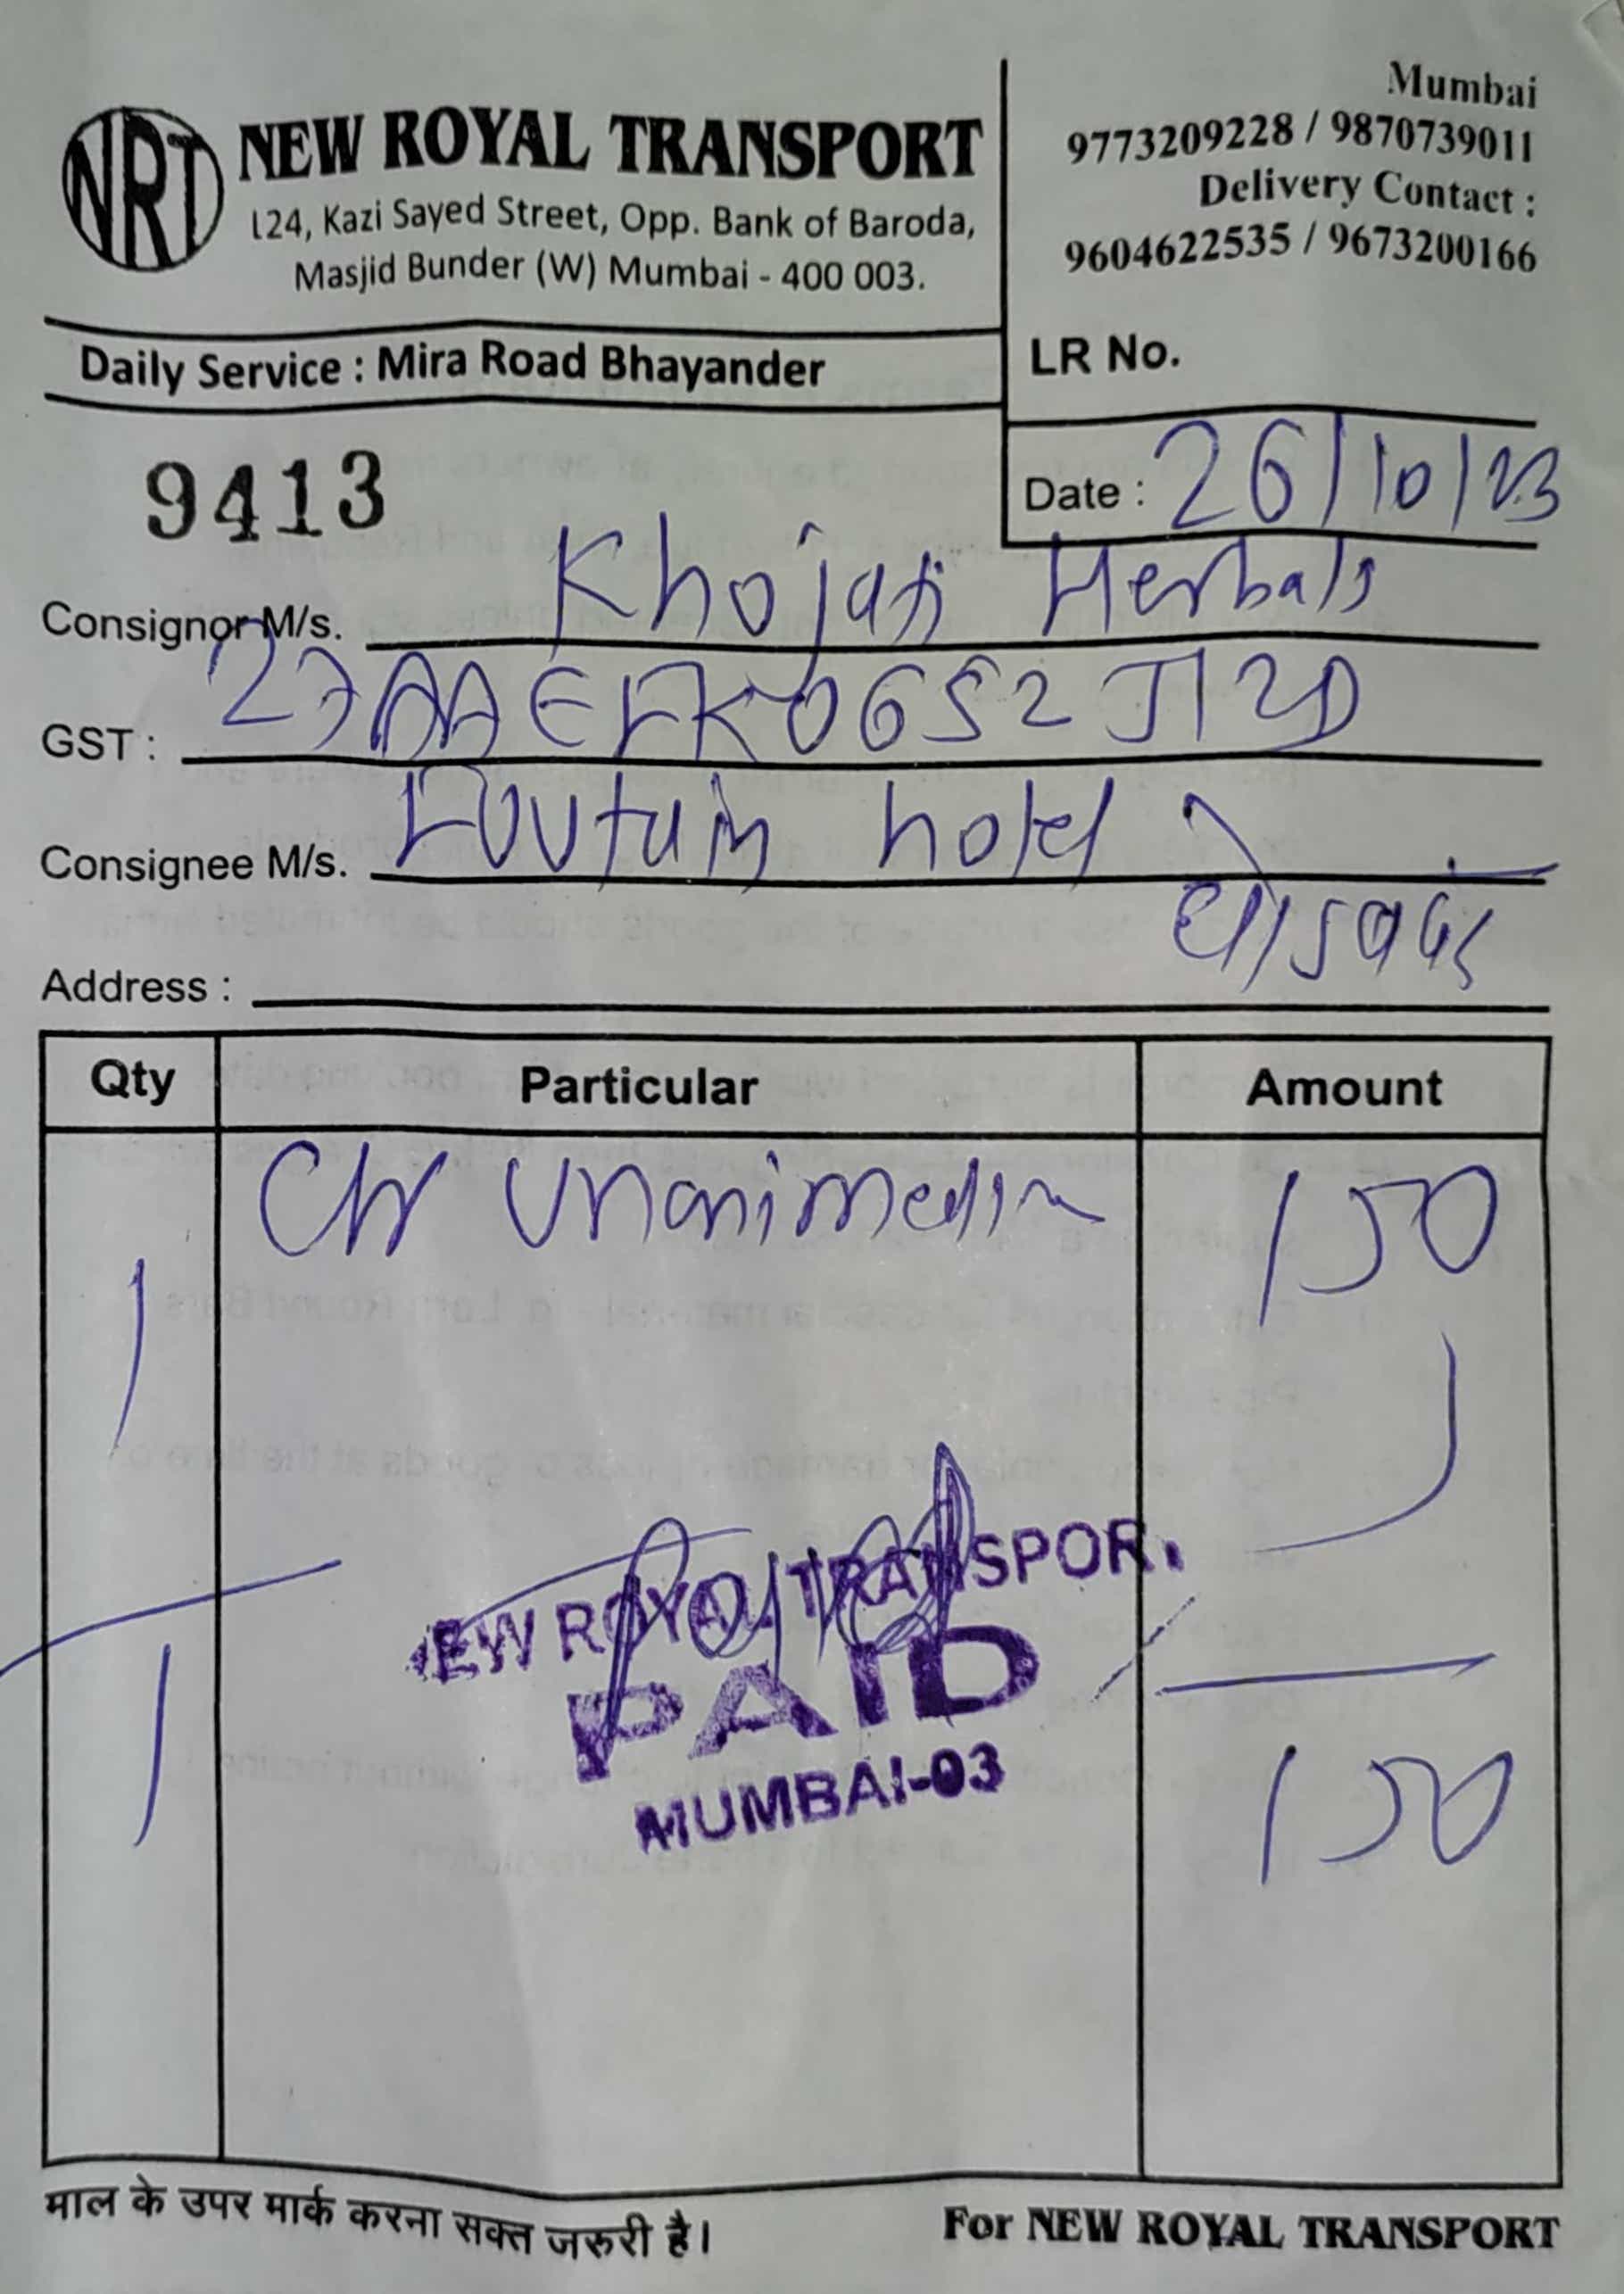 NRT
NEW ROYAL TRANSPORT
124, Kazi Sayed Street, Opp. Bank of Baroda,
Masjid Bunder (W) Mumbai - 400 003.
Mumbai
9773209228 / 9870739011
Delivery Contact :
9604622535 / 9673200166
Daily Service : Mira Road Bhayander
LR No.
9413
Date : 26/10/23
Consignor M/s. Khojati Herbals
GST : 27AAEFK0652J1ZD
Consignee M/s. hotel
Address :
Qty Particular Amount
1 150
NEW ROYAL TRANSPORT
PAID
MUMBAI-03
1 150
माल के उपर मार्क करना सक्त जरुरी है।
For NEW ROYAL TRANSPORT